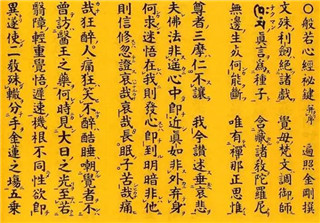 〇般若心經秘鍵 遍照金剛撰
文殊利劍絶諸戲 覺母梵文調御師
真言為種子 含藏諸教陀羅尼
無邊生死何能斷 唯有禪那正思惟
尊者三摩仁不讓 我今讃述垂哀悲
夫佛法非遥心中即近真如非外弃身
何求迷悟在我則發心即到明暗非他
則信修忽證哀哉哀哉長眠子苦哉痛
哉狂醉人痛狂笑不醉酷睡嘲覺者不
曽訪醫王之藥何時見大日之光至若
翳障輕重覺悟遲速機根不同性欲即
異遂使二教殊轍分手金蓮之場五乗